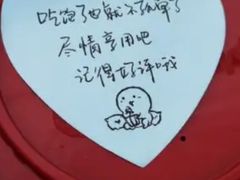 吃饱了也就不孤单了
尽情享用吧
记得好评哦